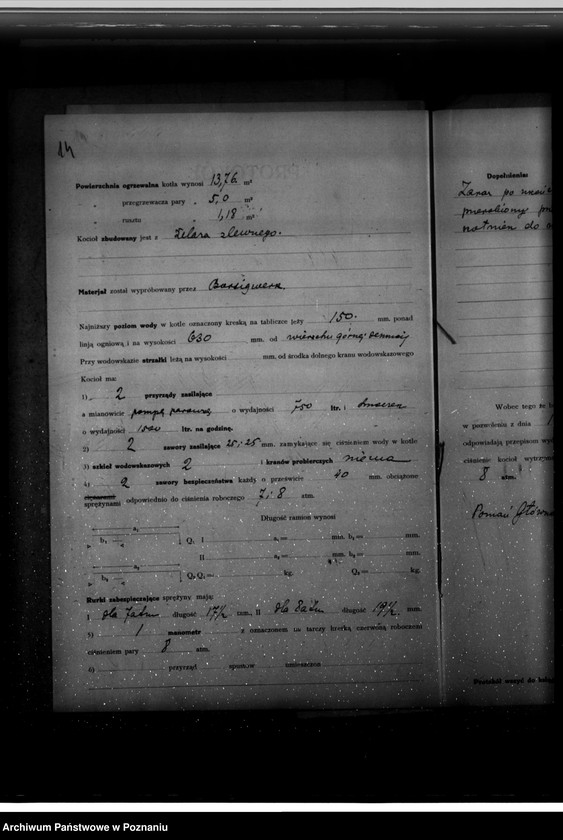 14
Powierzchnia ogrzewalna kotła wynosi 13,76 m²
" przegrzewacza pary " 5,0 m²
" rusztu " 1,18 m²
Kocioł zbudowany jest z żelaza zlewnego.
Materjał został wypróbowany przez Borsigwerk
Najniższy poziom wody w kotle oznaczony kreską na tabliczce leży 150. mm. ponad
linją ogniową i na wysokości 630 mm. od wierzchu górnej
Przy wodowskazie strzałki leżą na wysokości mm. od środka dolnego kranu wodowskazowego
Kocioł ma:
1) 2 przyrządy zasilające
a mianowicie pompę parową o wydajności 750 ltr. i
o wydajności 1500 ltr. na godzinę.
2) 2 zawory zasilające 25 i 25 mm. zamykające się ciśnieniem wody w kotle
3) szkieł wodowskazowych 2 i kranów probierczych niema
4) 2 zawory bezpieczeństwa każdy o prześwicie 40 mm. obciążone
ciężarami
sprężynami odpowiednio do ciśnienia roboczego 7 i 8 atm.
Długość ramion wynosi
Q₁ I a₁= mm. b₁= mm.
II a₂= mm. b₂= mm.
kg. Q₂= kg.
Rurki zabezpieczające sprężyny mają:
I dla 7 atm długość 17½ mm., II dla 8 atm długość 19½ mm.
5) 1 manometr z oznaczoną na tarczy kreską czerwoną roboczem
ciśnieniem pary 8 atm.
6) przyrząd sposków umieszczon
Dopełnienia:
Zaraz po
do
Wobec tego że
w pozwoleniu z dnia
odpowiadają przepisom
ciśnienie kocioł wytrzym
8 atm.
Poznań
Protokół wszyć do
Archiwum Państwowe w Poznaniu